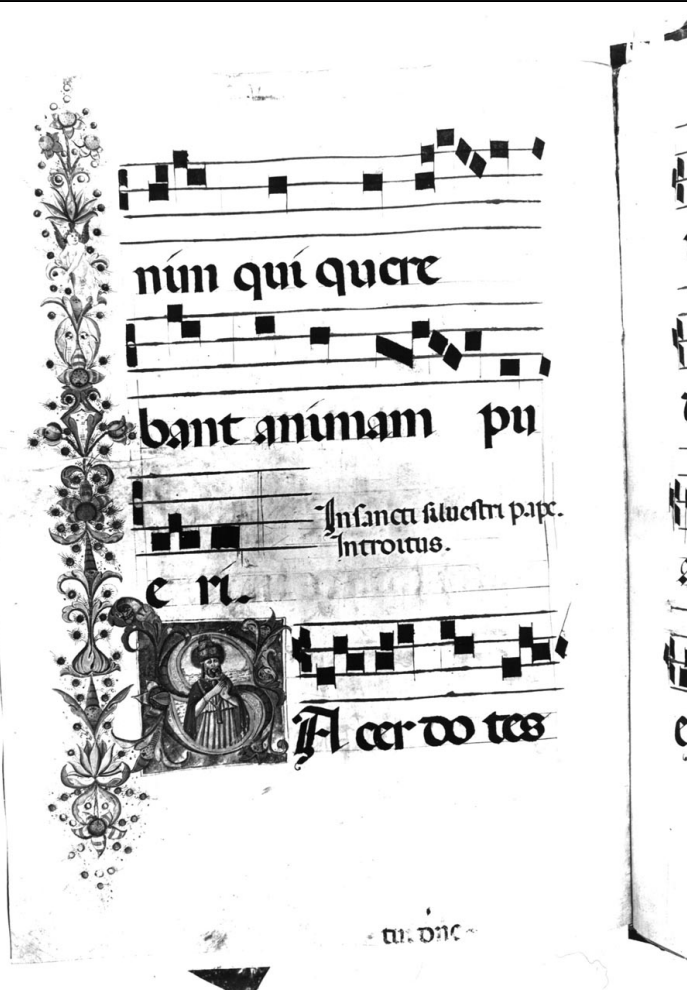 nim qui quere
bant animam pu
In sancti silvestri pape.
Introitus.
e ri.
SAcer do tes
tui. dñe